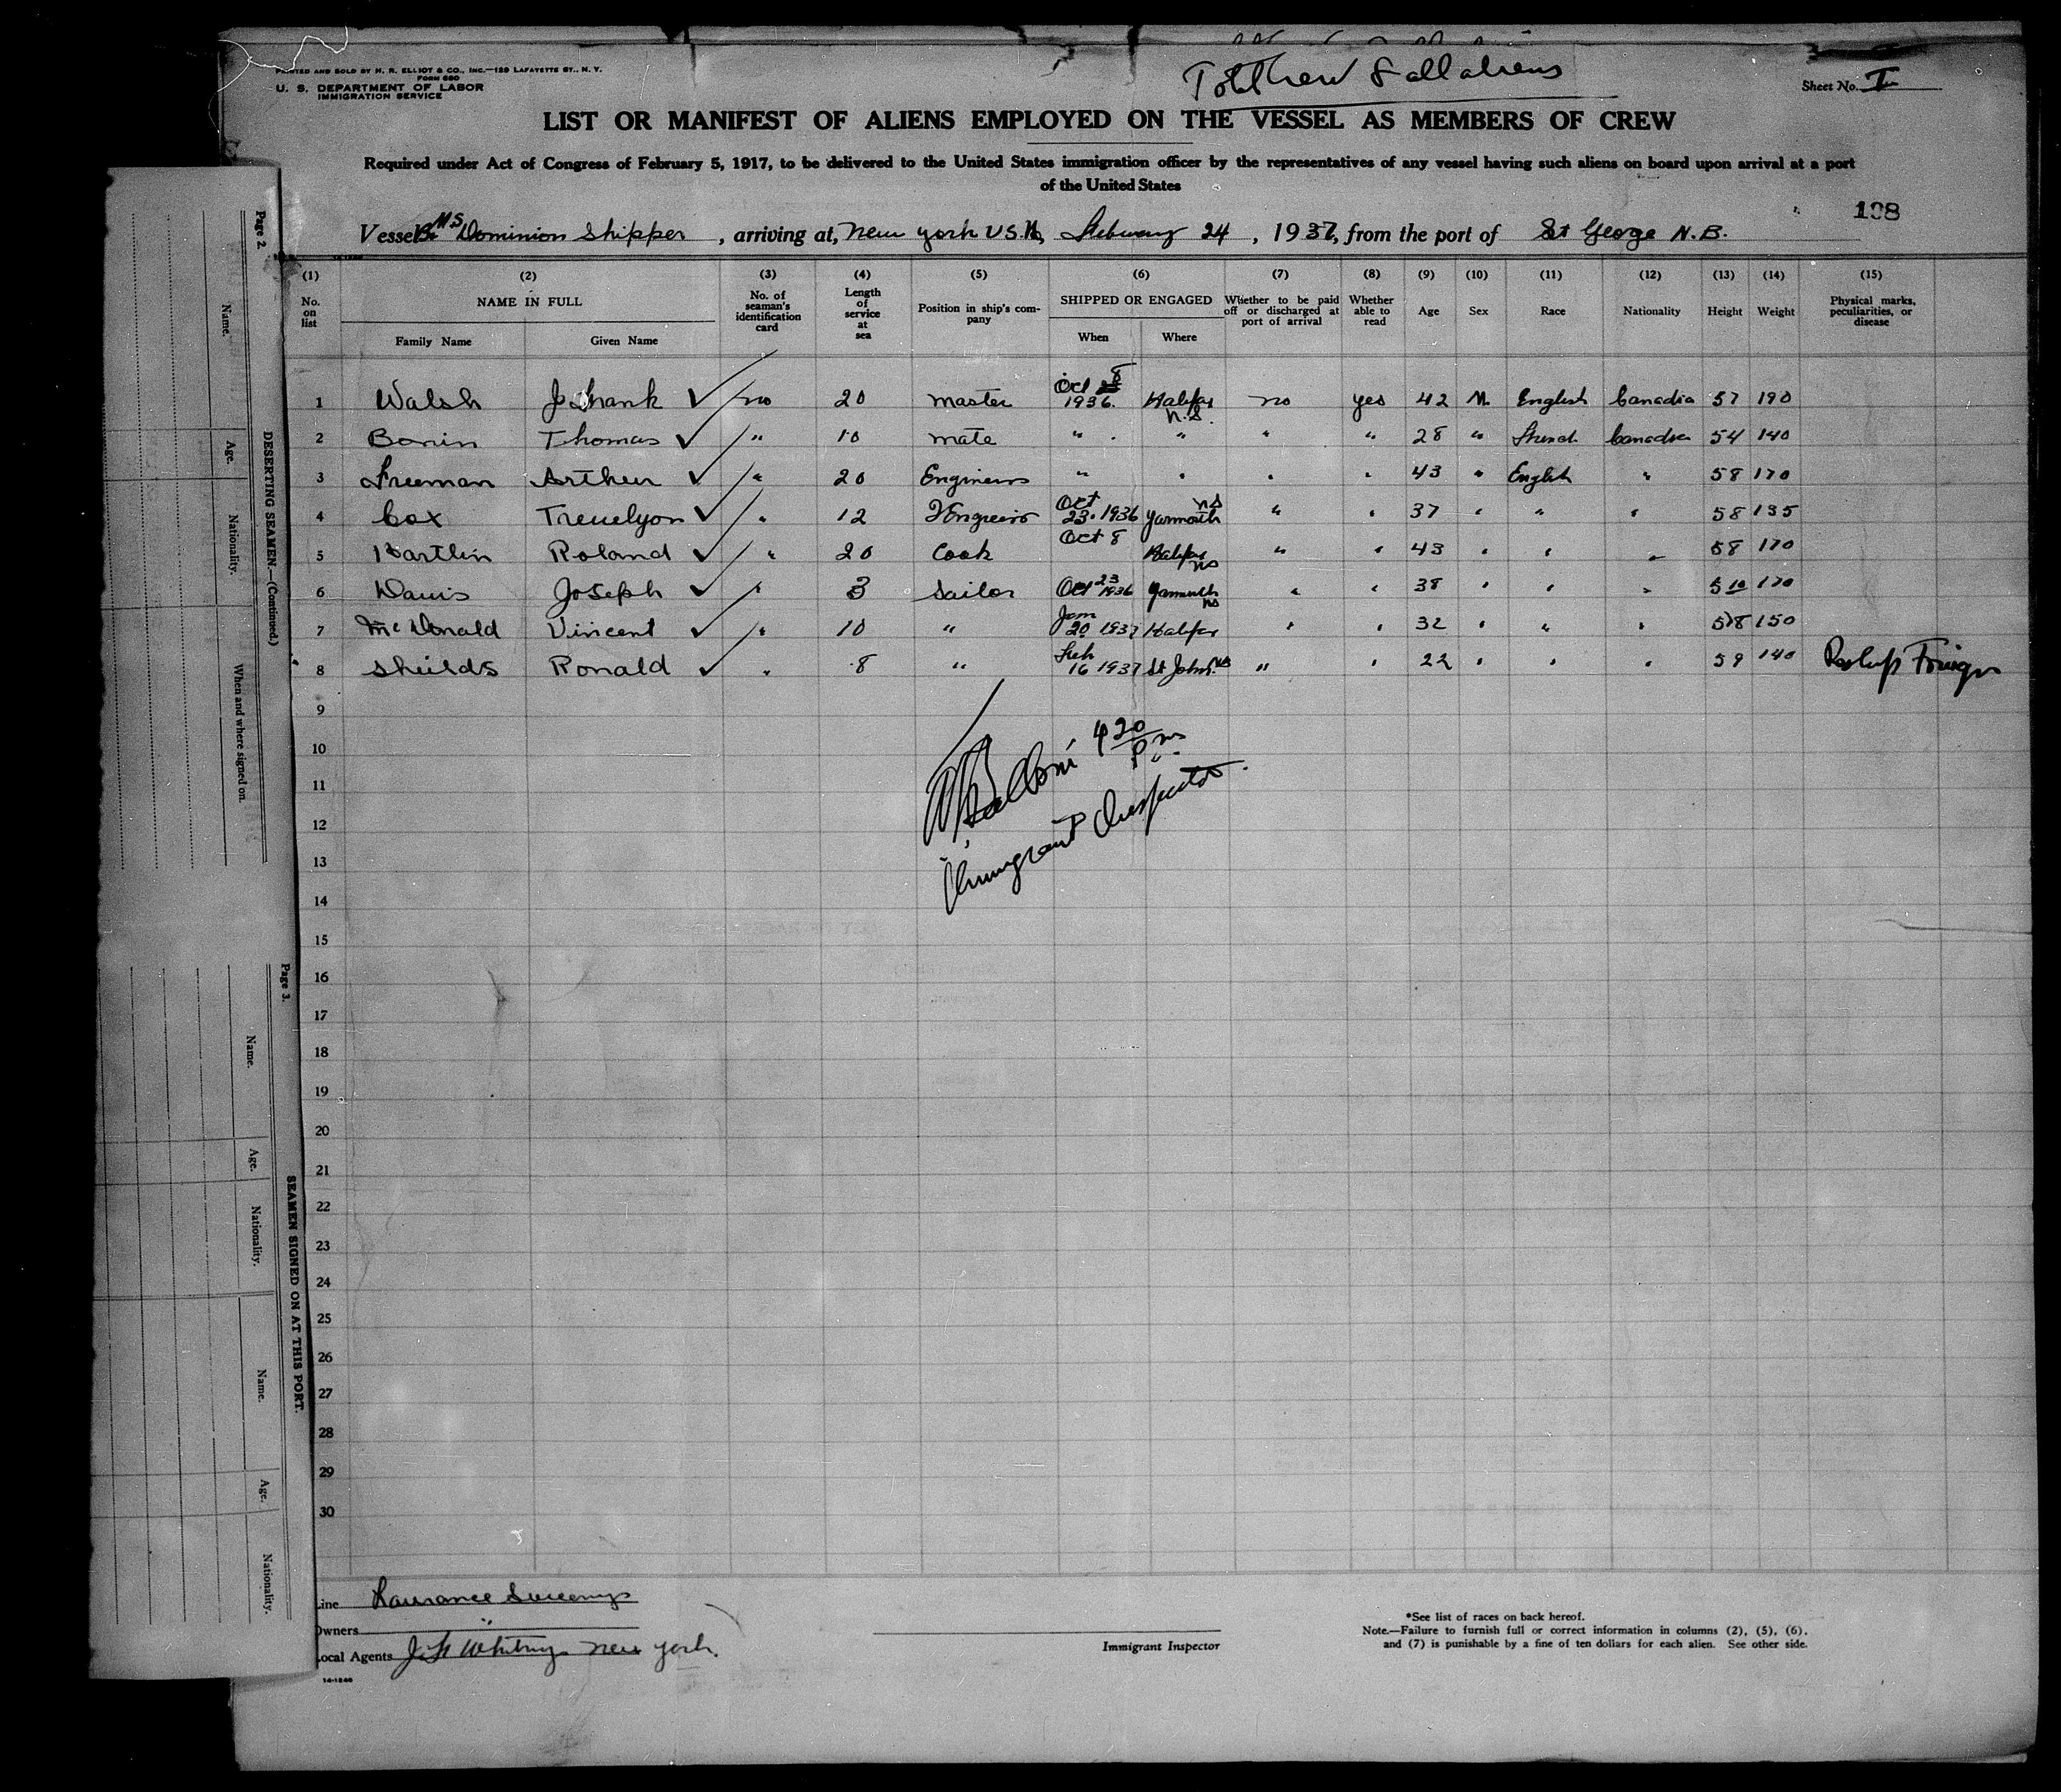 PRINTED AND SOLD BY H. R. ELLIOT & CO., INC.—129 LAFAYETTE ST., N. Y.
FORM 680
U. S. DEPARTMENT OF LABOR
IMMIGRATION SERVICE
8 all aliens
Sheet No. I
LIST OR MANIFEST OF ALIENS EMPLOYED ON THE VESSEL AS MEMBERS OF CREW
Required under Act of Congress of February 5, 1917, to be delivered to the United States immigration officer by the representatives of any vessel having such aliens on board upon arrival at a port
of the United States
108
Vessel MS Dominion Shipper, arriving at, New York U.S.A, February 24, 1937, from the port of St George N.B.
(1) (2) (3) (4) (5) (6) (7) (8) (9) (10) (11) (12) (13) (14) (15)
No. on list NAME IN FULL No. of seaman's identification card Length of service at sea Position in ship's company SHIPPED OR ENGAGED Whether to be paid off or discharged at port of arrival Whether able to read Age Sex Race Nationality Height Weight Physical marks, peculiarities, or disease
Family Name Given Name When Where
1 Walsh J Frank ✓ no 20 master Oct 8 1936. Halifax N.S. no yes 42 M. English Canadia 57 190
2 Bonin Thomas ✓ " 10 mate " " " " 28 " French Canadia 54 140
3 Freeman Arthur ✓ " 20 Engineers " " " " 43 " English " 58 170
4 Cox Trevelyon ✓ " 12 Oct 23. 1936 Yarmouth NS " " 37 " " " 58 135
5 Hartlin Roland ✓ " 20 Cook Oct 8 Halifax NS " " 43 " " " 58 170
6 Davis Joseph ✓ " 3 Sailor Oct 23 1936 Yarmouth NS " " 38 " " " 510 170
7 McDonald Vincent ✓ " 10 " Jan 20 1937 Halifax " " 32 " " " 58 150
8 Sheilds Ronald ✓ " 8 " Feb 16 1937 St John NB " " 22 " " " 59 140
9
10
11
12
13
14
15
16
17
18
19
20
21
22
23
24
25
26
27
28
29
30
4 20 P.m.
Immigrant Inspector
Line Laurance Sweenys
Owners "
Local Agents Whitney New York.
14-1240
Immigrant Inspector
*See list of races on back hereof.
Note.—Failure to furnish full or correct information in columns (2), (5), (6),
and (7) is punishable by a fine of ten dollars for each alien. See other side.
Page 2.
DESERTING SEAMEN.—(Continued.)
Name.
Age.
Nationality.
When and where signed on.
Page 3.
SEAMEN SIGNED ON AT THIS PORT.
Name.
Age.
Nationality.
Name.
Age.
Nationality.